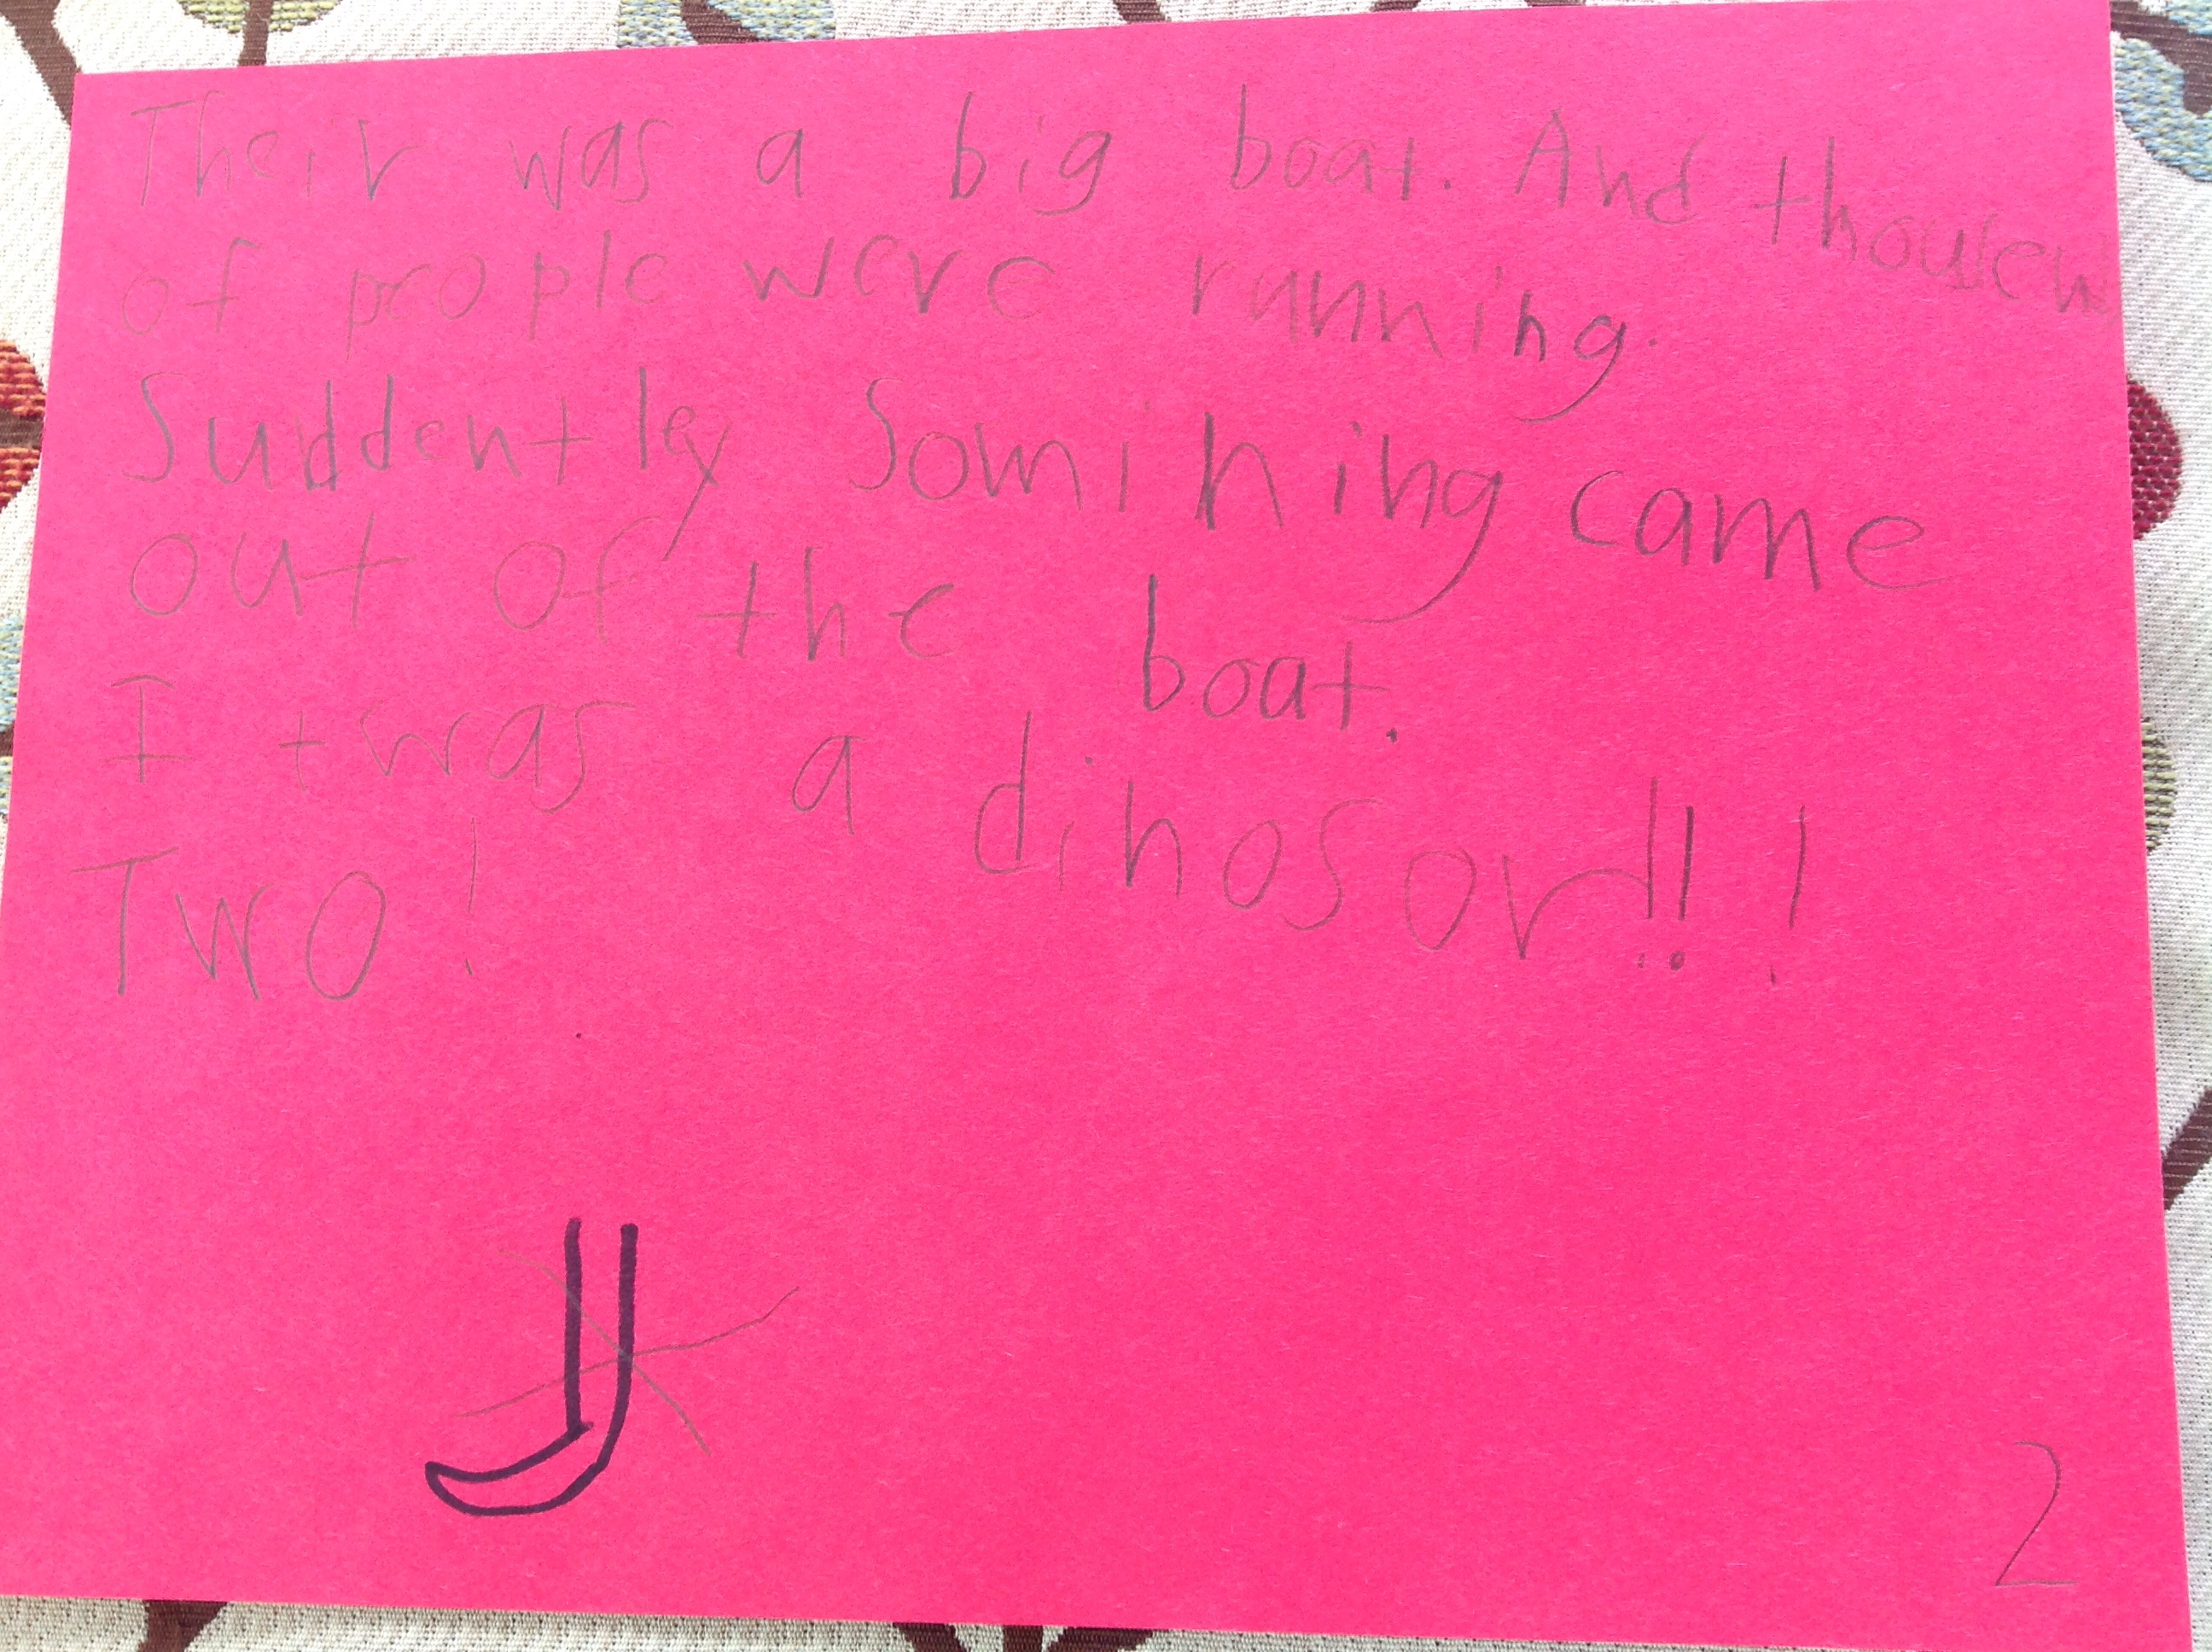 Their was a big boat. And thousen
of people were running.
Suddentley Somihing came
out of the boat.
I twas a dinosor!!!
Two!
2